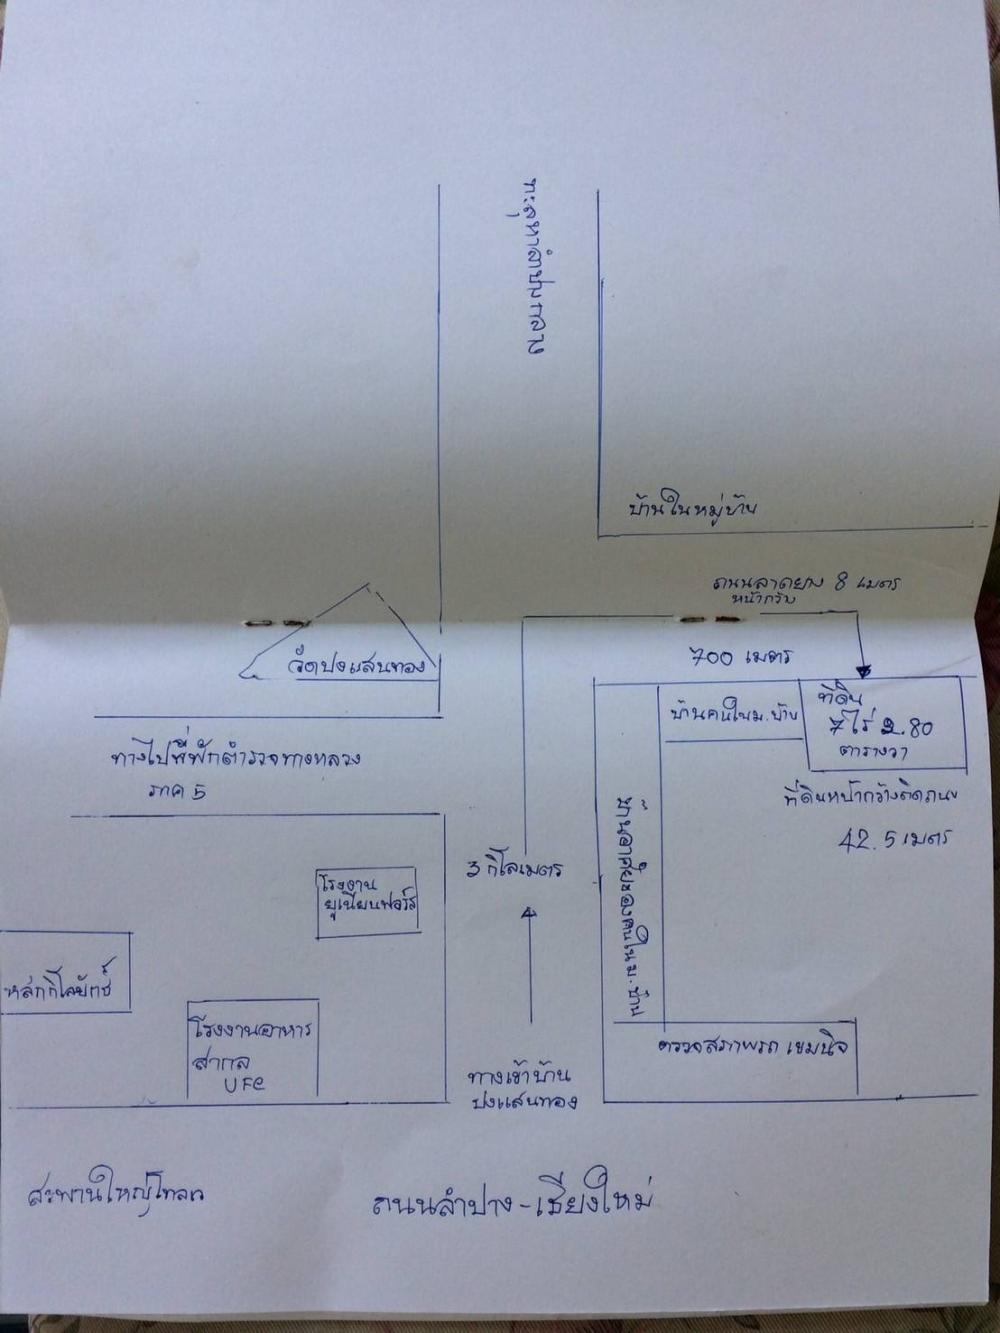 ทะลุหาลำปางกลาง
บ้านในหมู่บ้าน
ถนนลาดยาง 8 เมตร
หน้ากว้าง
700 เมตร
วัดปงแสนทอง
ที่ดิน
7 ไร่ 2.80
ตารางวา
บ้านคนใน ม.บ้าน
ทางไปที่พักตำรวจทางหลวง
ภาค 5
ที่ดินหน้ากว้างติดถนน
42.5 เมตร
บ้านอาศัยของคนใน ม.บ้าน
3 กิโลเมตร
โรงงาน
ยูเนียนฟอร์ส
หลักกิโลยักษ์
โรงงานอาหาร
สากล
UFC
ตรวจสภาพรถ เขมนิจ
ทางเข้าบ้าน
ปงแสนทอง
สะพานใหญ่โทลเว
ถนนลำปาง-เชียงใหม่